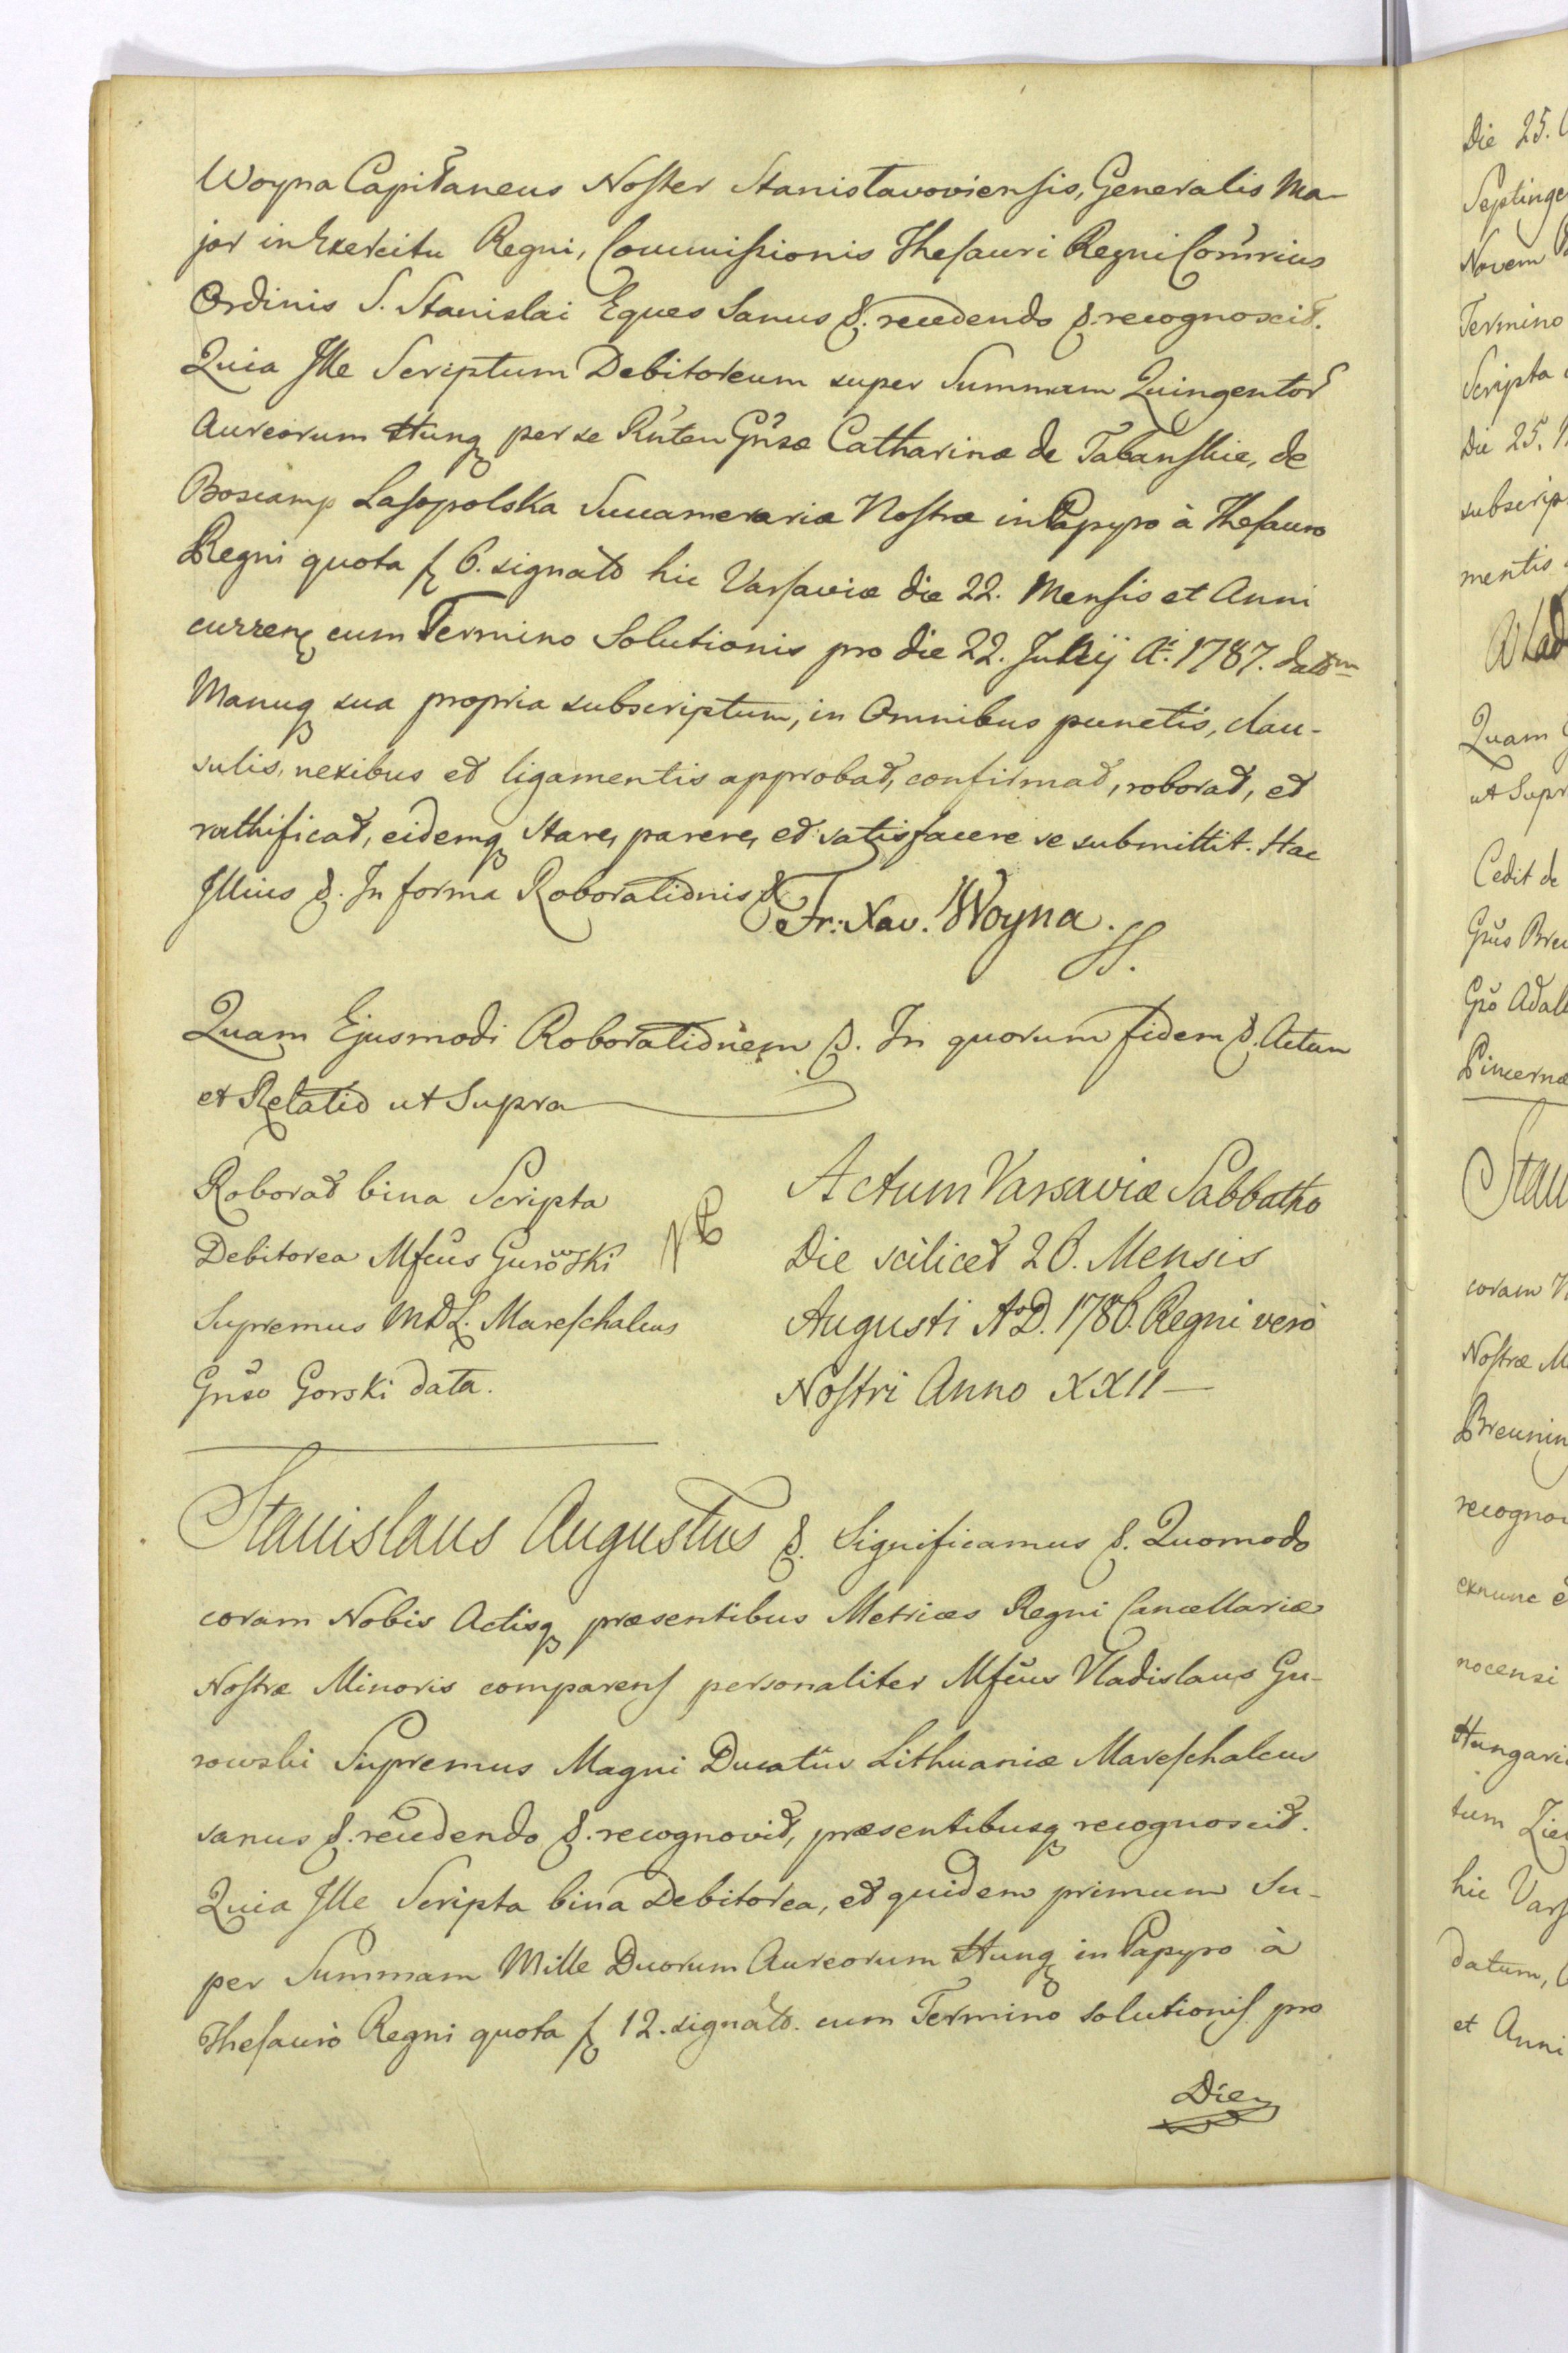 Woyna Capitaneus Noster Stanislavoviensis, Generalis Ma-
jor in Exercitu Regni, Commissionis Thesauri Regni Com̃rius
Ordinis S. Stanislai Eques Sanus &. recedendo &. recognoscit.
Quia Ille Scriptum Debitoreum super Summam Quingentor
Aureorum Hung per se Rñten Gñsæ Catharinæ de
Boscamp Lasopolska Succamerariæ Nostræ in Papyro à Thesauro
Regni quota f 6. signato hic Varsaviæ die 22. Mensis et Anni
curren cum Termino Solutionis pro die 22. Julij A. 1787. datm
Manuq sua propria subscriptum, in Omnibus punctis, clau-
sulis, nexibus et ligamentis approbat, confirmat, roborat, et
rathificat, eidemq stare, parere, et satisfacere se submittit. Hac
Illius &. In forma Roborationis &
Fr: Xav. Woyna.
Quam Ejusmodi Roborationem &. In quorum fidem &. Actum
et Relatio ut Supra
Roborat bina Scripta
Debitorea Mfcũs Gurowski
Supremus M.D.L. Mareschalcus
Gñso Gorski data.
NB
Actum Varsaviæ Sabbatho
Die scilicet 26. Mensis
Augusti A.D. 1786. Regni verò
Nostri Anno XXII
Stanislaus Augustus &. Significamus &. Quomodo
coram Nobis Actisq præsentibus Metrices Regni Cancellariæ
Nostræ Minoris comparens personaliter Mfcũs Vladislaus Gu-
rowski Supremus Magni Ducatus Lithuaniæ Mareschalcus
sanus &. recedendo &. recognovit, præsentibusq recognoscit.
Quia Ille Scripta bina Debitorea, et quidem primum Su-
per Summam Mille Duorum Aureorum Hung in Papyro à
Thesaurò Regni quota f 12. signato. cum Termino solutionis pro
Die
Die 25.
Novem
Termino
Scripta
Die 25.
subscrip
mentis
Quam
ut Supr
Cedit de
Gñs
Gso Adalb
Pincernæ
Stan
coram
Nostræ M
Breunin
recogno
exnunc e
nocensi
Hungari
tum
hic Vars
datum,
et Anni